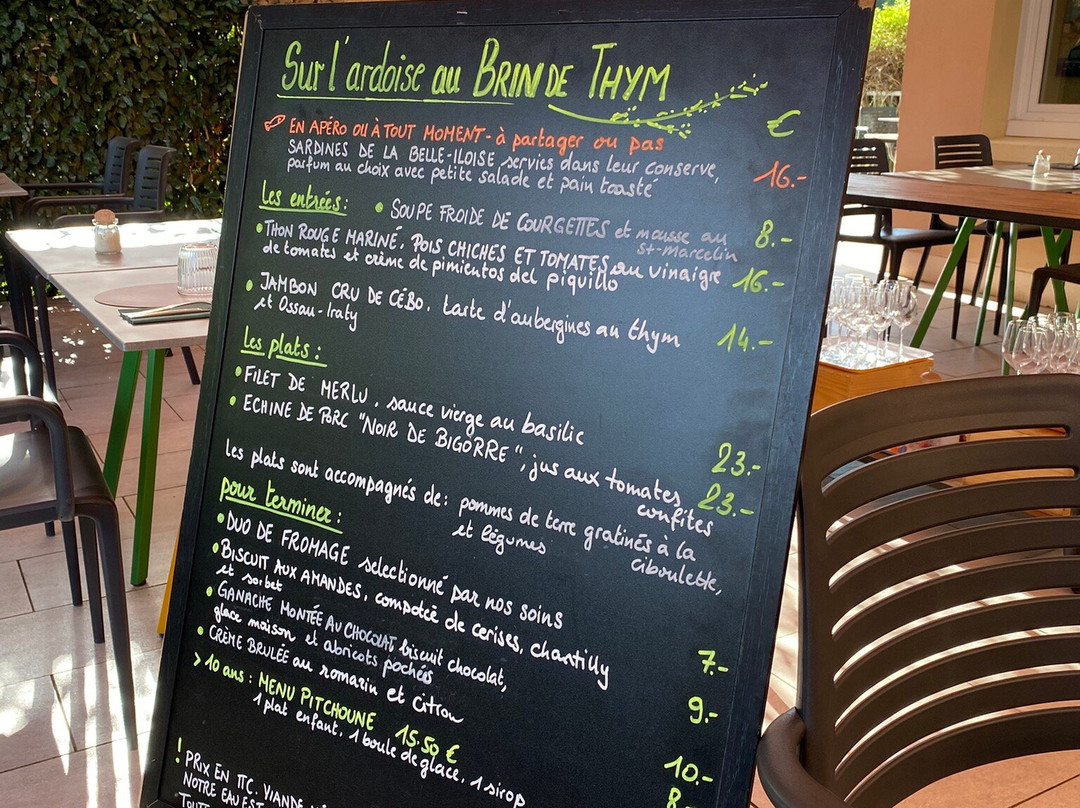 Sur l'ardoise au BRIN DE THYM
€
EN APÉRO OU À TOUT MOMENT - à partager ou pas
SARDINES DE LA BELLE-ILOISE servies dans leur conserve, 16.-
parfum au choix avec petite salade et pain toasté
les entrées:
• SOUPE FROIDE DE COURGETTES et mousse au 8.-
St-Marcelin
• THON ROUGE MARINÉ, POIS CHICHES ET TOMATES au vinaigre 16.-
de tomates et crème de pimientos del piquillo
• JAMBON CRU DE CÉBO, tarte d'aubergines au thym 14.-
et Ossau-Iraty
les plats:
• FILET DE MERLU, sauce vierge au basilic 23.-
• ECHINE DE PORC "NOIR DE BIGORRE", jus aux tomates 23.-
confites
les plats sont accompagnés de: pommes de terre gratinés à la
ciboulette,
et légumes
pour terminer:
• DUO DE FROMAGE selectionné par nos soins 7.-
• BISCUIT AUX AMANDES, compotée de cerises, chantilly 9.-
et sorbet
• GANACHE MONTÉE AU CHOCOLAT biscuit chocolat, 10.-
glace maison et abricots pochés
• CRÈME BRULÉE au romarin et citron 8.-
> 10 ans: MENU PITCHOUNE 15.50 €
1 plat enfant, 1 boule de glace, 1 sirop
! PRIX EN TTC. VIANDE
NOTRE EAU EST